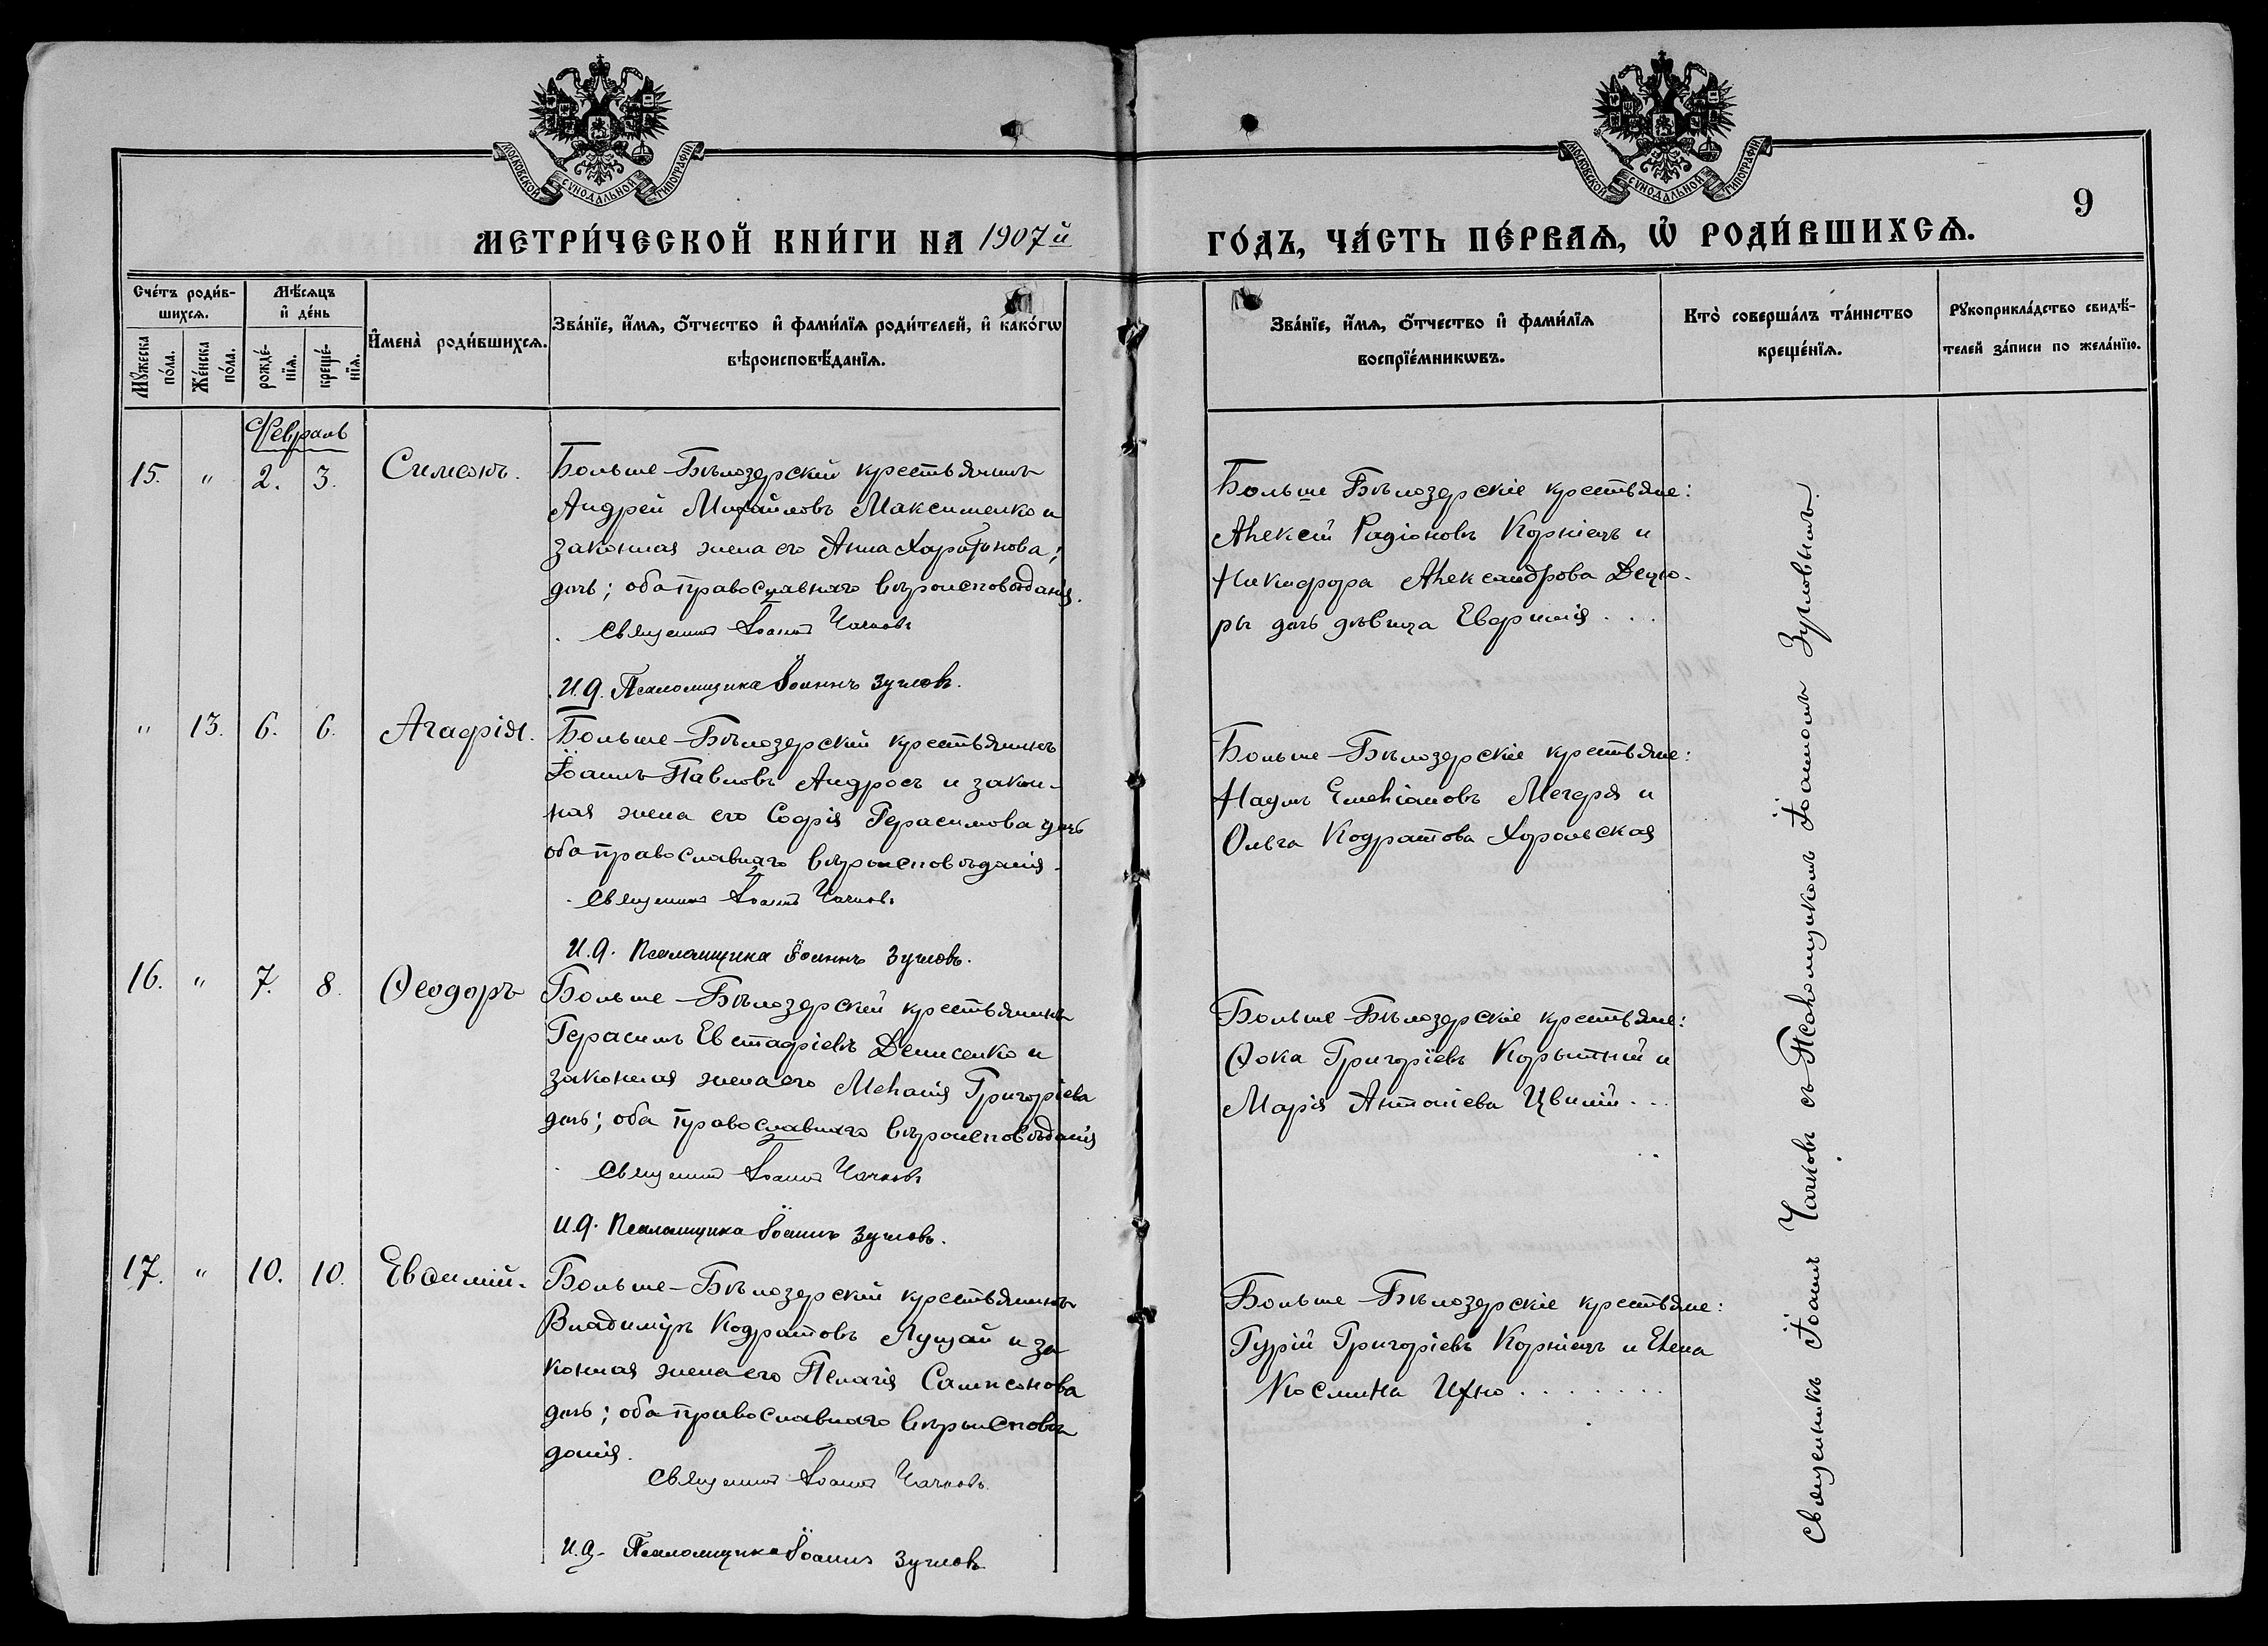 МОСКОВСКОЙ СѴНОДАЛЬНОЙ ТИПОГРАФІИ
МОСКОВСКОЙ СѴНОДАЛЬНОЙ ТИПОГРАФІИ
9
МЕТРИ́ЧЕСКОЙ КНИ́ГИ НА 1907й
ГО́ДЪ, ЧА́СТЬ ПЕ́РВАѦ, Ѡ҆ РОДИ́ВШИХСѦ.
Сче́тъ роди́в-
шихсѧ.
Мѣ́сѧцъ
и҆ де́нь
Мꙋ́жеска
по́ла.
Же́нска
по́ла.
рожде́-
нїѧ.
креще́-
нїѧ.
И҆мена̀ роди́вшихсѧ.
Зва́нїе, и҆́мѧ, ѻ҆́тчество и҆ фами́лїѧ роди́телей, и҆ како́гѡ
вѣроисповѣ́данїѧ.
Зва́нїе, и҆́мѧ, ѻ҆́тчество и҆ фами́лїѧ
воспрїе́мникѡвъ.
Кто̀ соверша́лъ та́инство
креще́нїѧ.
Рꙋкоприкла́дство свидѣ́-
телей за́писи по жела́нїю.
Февраль
15. " 2. 3. Симеонъ.
Больше-Бѣлозерскій крестьянинъ
Андрей Михайловъ Максименко и
законная жена его Анна Харитонова;
дочь; оба православнаго вѣроисповѣданія.
Священникъ Іоаннъ Чачковъ
И.д. Псаломщика Іоаннъ Зугловъ.
Больше Бѣлозерскіе крестьяне:
Алексѣй Радіоновъ Корніецъ и
Никифора Александрова Децю-
ры дочь дѣвица Евфимія . . .
" 13. 6. 6. Агафія.
Больше-Бѣлозерскій крестьянинъ
Іоаннъ Павловъ Андросъ и закон-
ная жена его Софія Герасимова дочь
оба православнаго вѣроисповѣданія.
Священникъ Іоаннъ Чачковъ
И.д. Псаломщика Іоаннъ Зугловъ.
Больше-Бѣлозерскіе крестьяне:
Наумъ Емеліановъ Мегеря и
Ольга Кодратова Хорольская
16. " 7. 8. Ѳеодоръ
Больше-Бѣлозерскій крестьянинъ
Герасимъ Евстафіевъ Денисенко и
законная жена его Меланія Григоріева
дочь; оба православнаго вѣроисповѣданія
Священникъ Іоаннъ Чачковъ
И.д. Псаломщика Іоаннъ Зугловъ.
Больше-Бѣлозерскіе крестьяне:
Ѳока Григоріевъ Корытній и
Марія Антоніева Цвилій . . .
17. " 10. 10. Евѳимій.
Больше-Бѣлозерскій крестьянинъ
Владиміръ Кодратовъ Лущай и за
конная жена его Пелагія Сампсонова
дочь; оба православнаго вѣроисповѣ
данія.
Священникъ Іоаннъ Чачковъ.
И.д. Псаломщика Іоаннъ Зугловъ
Больше-Бѣлозерскіе крестьяне:
Гурій Григоріевъ Корніецъ и Елена
Космина Ихно . . . . . . . .
Священникъ Іоаннъ Чачковъ съ Псаломщикомъ Іоанномъ Зугловымъ.